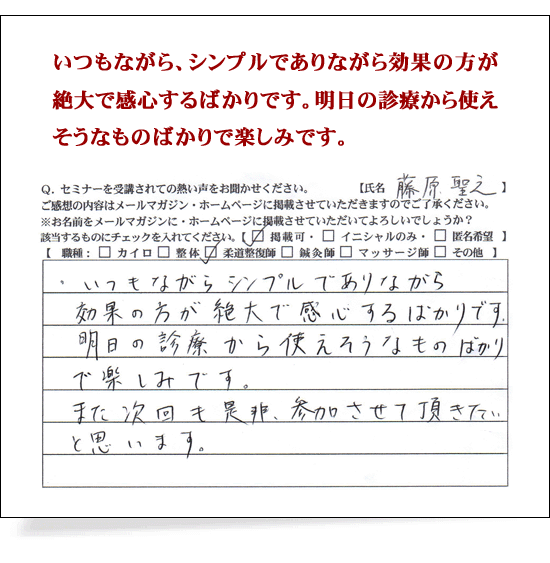 いつもながら、シンプルでありながら効果の方が
絶大で感心するばかりです。明日の診療から使え
そうなものばかりで楽しみです。
Q. セミナーを受講されての熱い声をお聞かせください。 【氏名 藤原 聖之 】
ご感想の内容はメールマガジン・ホームページに掲載させていただきますのでご了承ください。
※お名前をメールマガジンに・ホームページに掲載させていただいてよろしいでしょうか？
該当するものにチェックを入れてください。【☑掲載可・□イニシャルのみ・□匿名希望 】
【 職種：□カイロ □整体 ☑柔道整復師 □鍼灸師 □マッサージ師 □その他 】
・いつもながらシンプルでありながら
効果の方が絶大で感心するばかりです。
明日の診療から使えそうなものばかり
で楽しみです。
また次回も是非、参加させて頂きたい
と思います。